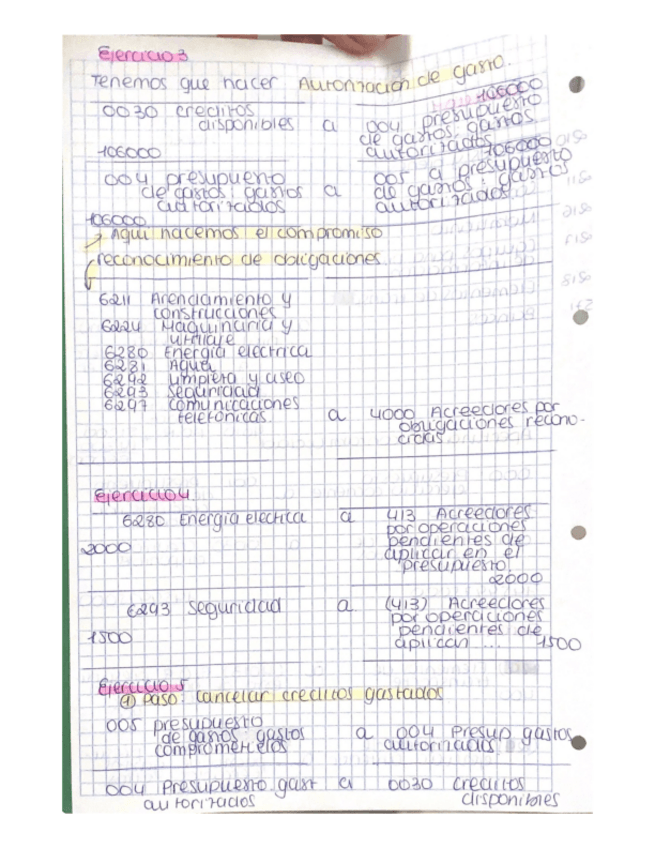 Ejercicio 3
Tenemos que hacer Autorización de gasto.
106000
0030 creditos disponibles a 004 presupuesto de gastos. gastos autorizados
106000
106000
004 presupuesto de gastos; gastos autorizados a 005 a presupuesto de gastos; gastos autorizados.
106000
Aqui hacemos el compromiso
reconocimiento de obligaciones.
6211 Arrendamiento y
construcciones
6224 Maquinaria y
utillaje
6280 Energia electrica
6281 Agua
6292 Limpieza y aseo
6293 Seguridad
6297 Comunicaciones
telefónicas. a 4000 Acreedores por
obligaciones recono-
cidas
Ejercicio 4
6280 Energia electica a 413 Acreedores
por operaciones
pendientes de
2000 aplicar en el
presupuesto.
2000
6293 seguridad a (413) Acreedores
por operaciones
pendientes de
1500 aplican ... 1500
Ejercicio 5
① Paso: cancelar creditos gastados
005 presupuesto
de gastos gastos a 004 Presup gastos
comprometidos autorizados
004 Presupuesto gast a 0030 creditos
autorizados disponibles